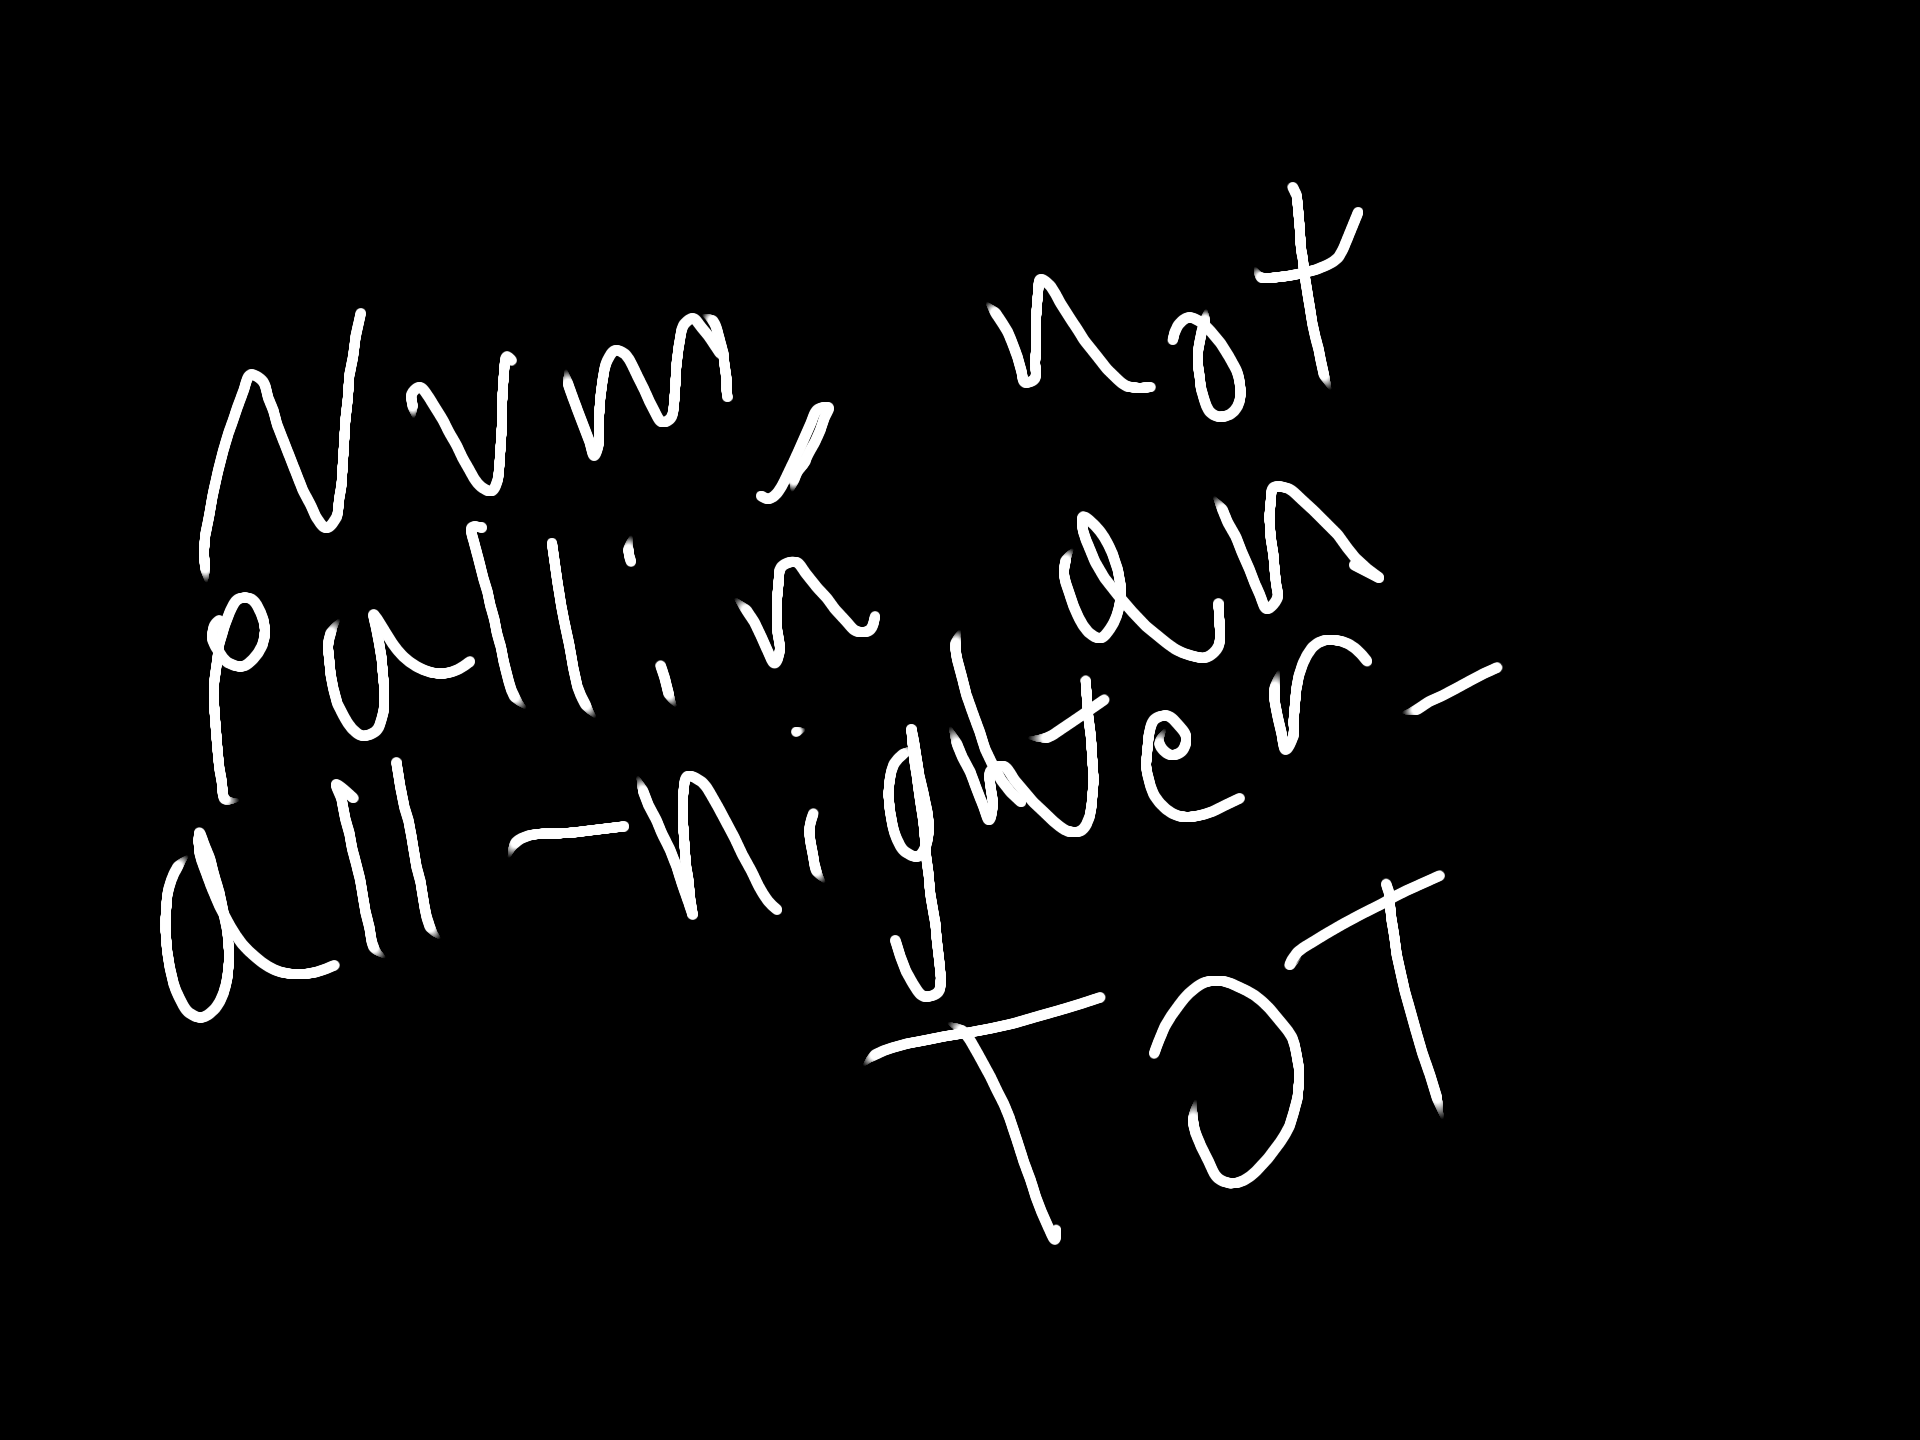 Nvm, not
pullin an
all-nighter-
TOT